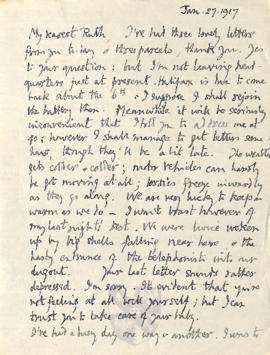 Jan. 27. 1917
My dearest Ruth, I've had three lovely letters
from you to-day & three parcels, thank you. Yes
to your question; but I'm not leaving head-
quarters just at present. Halifax is due to come
back about the 6th & I suppose I shall rejoin
the battery then. Meanwhile it will be seriously
inconvenient that I tell you to address me at
90; however I shall manage to get letters some
how, though they'll be a bit late. The weather
gets colder & colder; motor vehicles can hardly
be got moving at all; horses freeze inwardly
as they go along. We are very lucky to keep as
warm as we do – I won't boast however of
my last night's rest. We were twice woken
up by big shells falling near here & the
hasty entrance of the telephonists into our
dugout. Your last letter sounds rather
depressed. I'm sorry. It's evident that you're
not feeling at all well yourself; but I can
trust you to take care of your baby.
I've had a busy day, one way & another. I was to